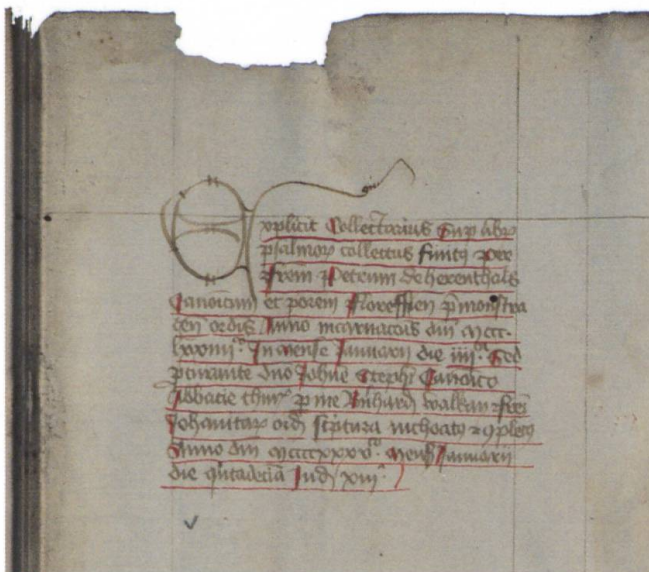 Explicit Collectarius Sup libro
psalmorum collectus finitus per
frem Petrum de herenthals
Canonicum et porem Floreffien premonstra
cen ordis Anno incarnacois dni mccc
lxxiiii Ju mense Januarii die iiii Sed
pcurante dno Johne Stephi Canonico
Abbacie p me
Johanitar ord scptura inchoatus et opletus
Anno dni mccccxxxv mens Januarii
die qntadecia Ind xiii